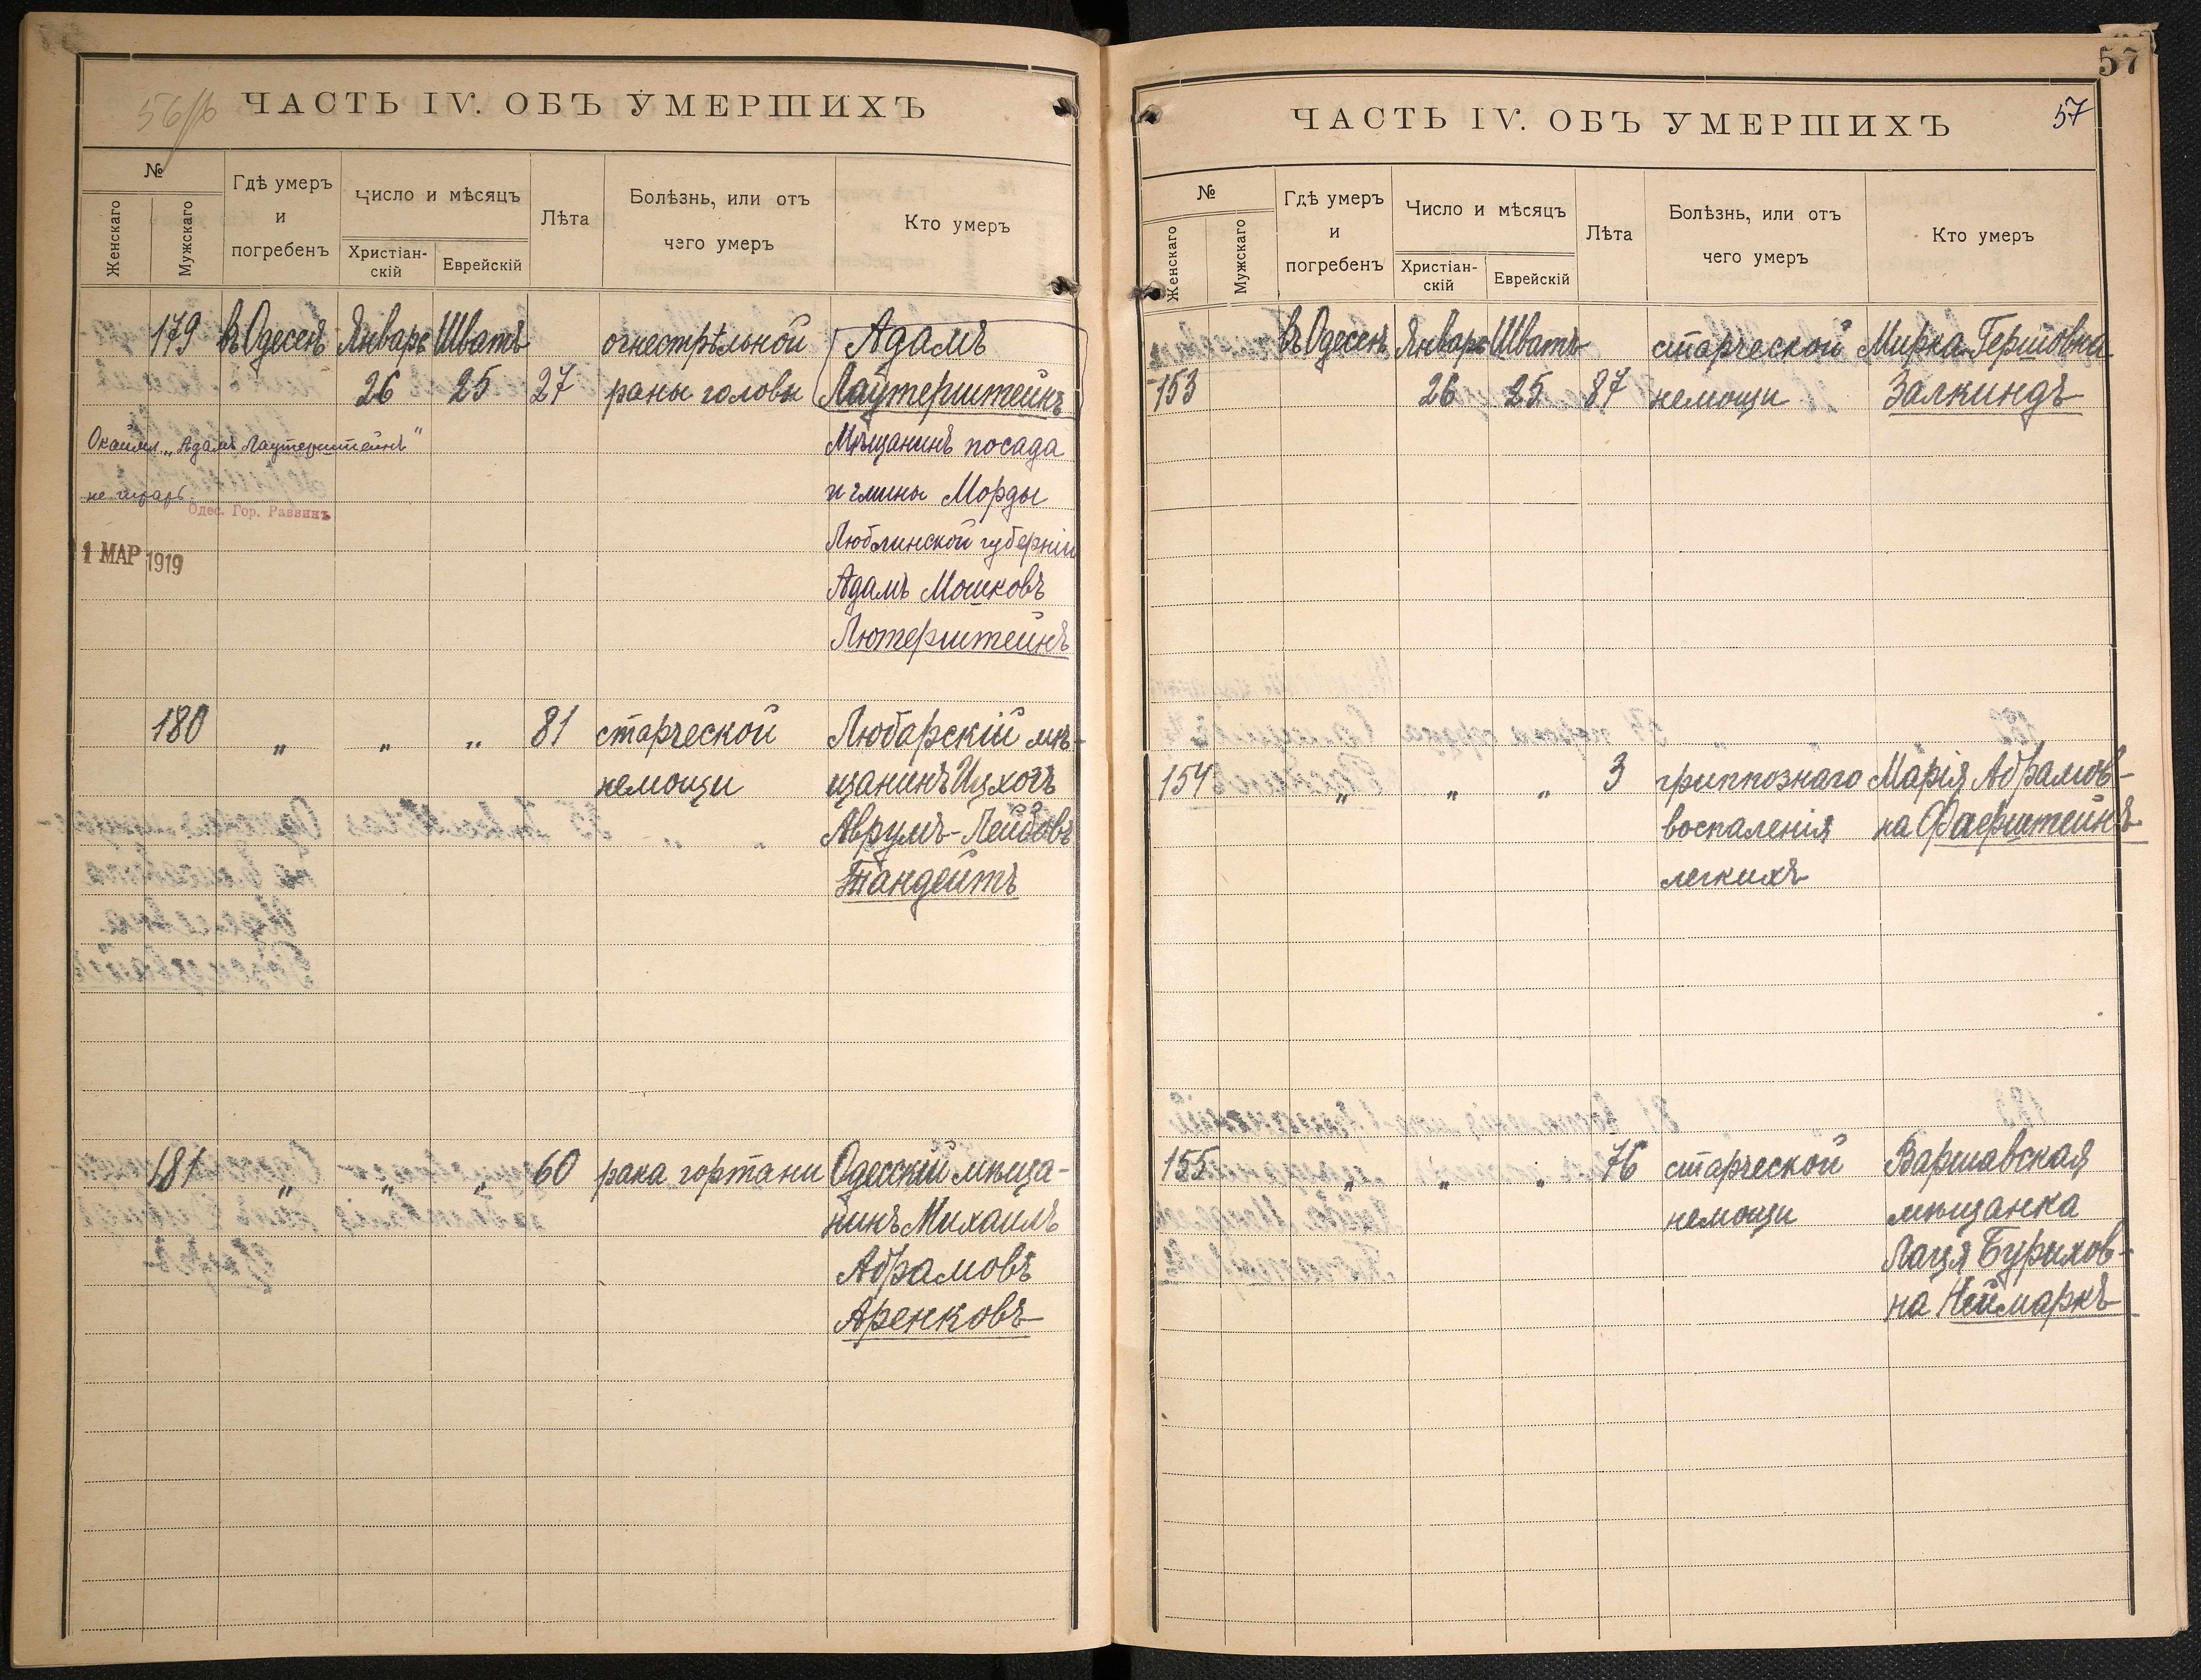 56/б
ЧАСТЬ IV. ОБЪ УМЕРШИХЪ
№
Женскаго
Мужскаго
Гдѣ умеръ
и
погребенъ
Число и мѣсяцъ
Христіан-
скій
Еврейскій
Лѣта
Болѣзнь, или отъ
чего умеръ
Кто умеръ
179 въ Одессѣ Январь Шватъ огнестрѣльной Адамъ
26 25 27 раны головы Лаутерштейнъ
Окаймл. „Адамъ Лаутерштейнъ" Мѣщанинъ посада
не читать и гмины Морды
Одес. Гор. Раввинъ
Люблинской губерніи
1 МАР 1919
Адамъ Мошковъ
Лютерштейнъ
180 „ „ „ 81 старческой Любарскій мѣ-
немощи щанинъ Ицхокъ
Аврумъ-Лейбовъ
Тандейтъ
181 „ „ „ 60 рака гортани Одесскій мѣща-
нинъ Михаилъ
Абрамовъ
Аренковъ
57
ЧАСТЬ IV. ОБЪ УМЕРШИХЪ 57
№
Женскаго
Мужскаго
Гдѣ умеръ
и
погребенъ
Число и мѣсяцъ
Христіан-
скій
Еврейскій
Лѣта
Болѣзнь, или отъ
чего умеръ
Кто умеръ
въ Одессѣ Январь Шватъ старческой Мирка Гершовна
153 26 25 87 немощи Залкиндъ
154 „ „ „ 3 гриппознаго Марія Абрамов-
воспаленія на Фаерштейнъ
легкихъ
155 „ „ „ 76 старческой Варшавская
немощи мѣщанка
Лаця Бурихов-
на Неймаркъ